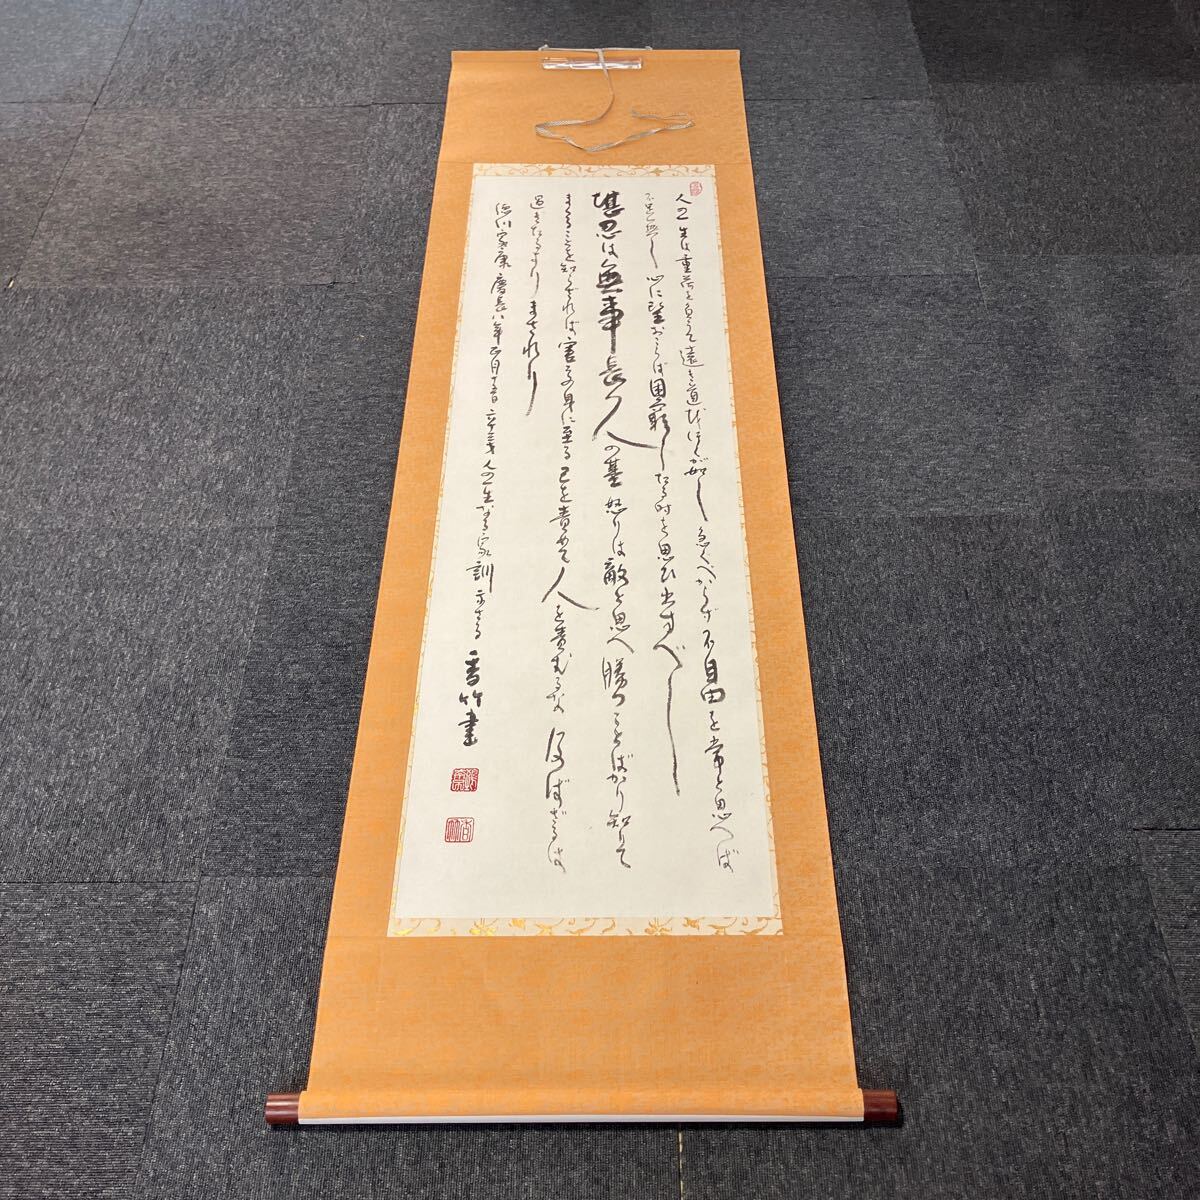 人の一生は重荷を負うて遠き道を行くが如し 急ぐべからず 不自由を常と思へば
不足無し 心に望おこらば困窮したる時を思ひ出すべし
堪忍は無事長久の基 怒りは敵と思へ 勝つことばかり知りて
まくることを知らざれば害其身に至る 己を責めて人を責むるな 及ばざるは
過ぎたるより まされり
徳川家康 慶長八年正月十五日 六十二才 人の一生なる家訓 示さる 香竹書